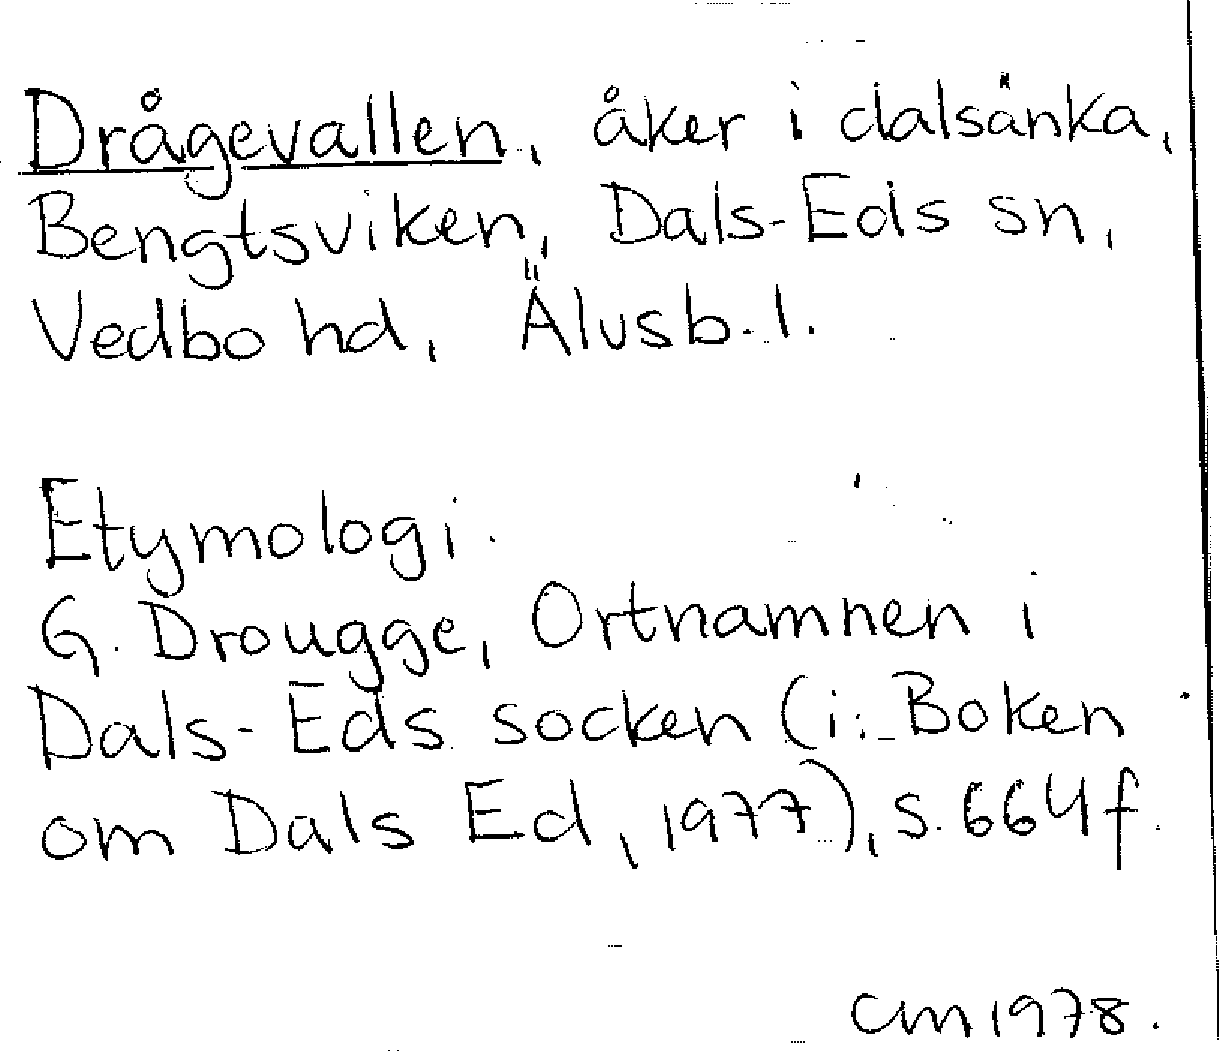 Drågevallen, åker i dalsänka,
Bengtsviken, Dals-Eds sn,
Vedbo hd, Älvsb. l.
Etymologi.
G. Drougge, Ortnamnen i
Dals-Eds socken (i: Boken
om Dals Ed, 1977), s. 664 f.
CM 1978.